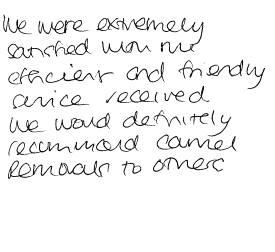 We were extremely
satisfied with the
efficient and friendly
service received
We would definitely
recommend Camel
Removals to others